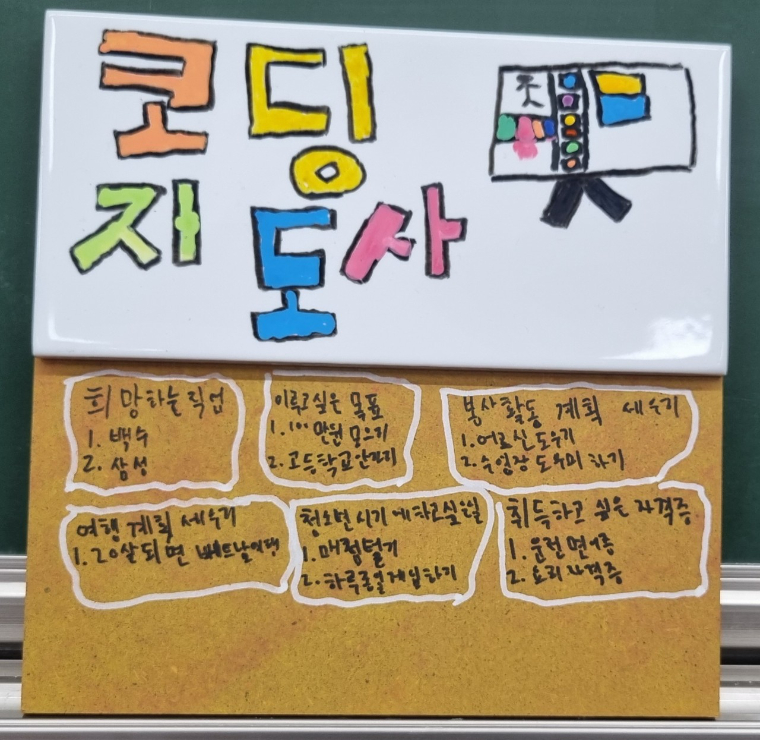 코딩
지도사
희망하는 직업
1. 백수
2. 삼성
이루고싶은 목표
1. 100 만원 모으기
2. 고등학교
봉사활동 계획 세우기
1. 어르신 도우기
2. 수영장 도우미 하기
여행 계획 세우기
1. 20살 되면 베트남여행
청소년 시기에 하고싶은일
1. 매점털기
2. 하루종일 게임하기
취득하고 싶은 자격증
1. 운전면허증
2. 요리자격증